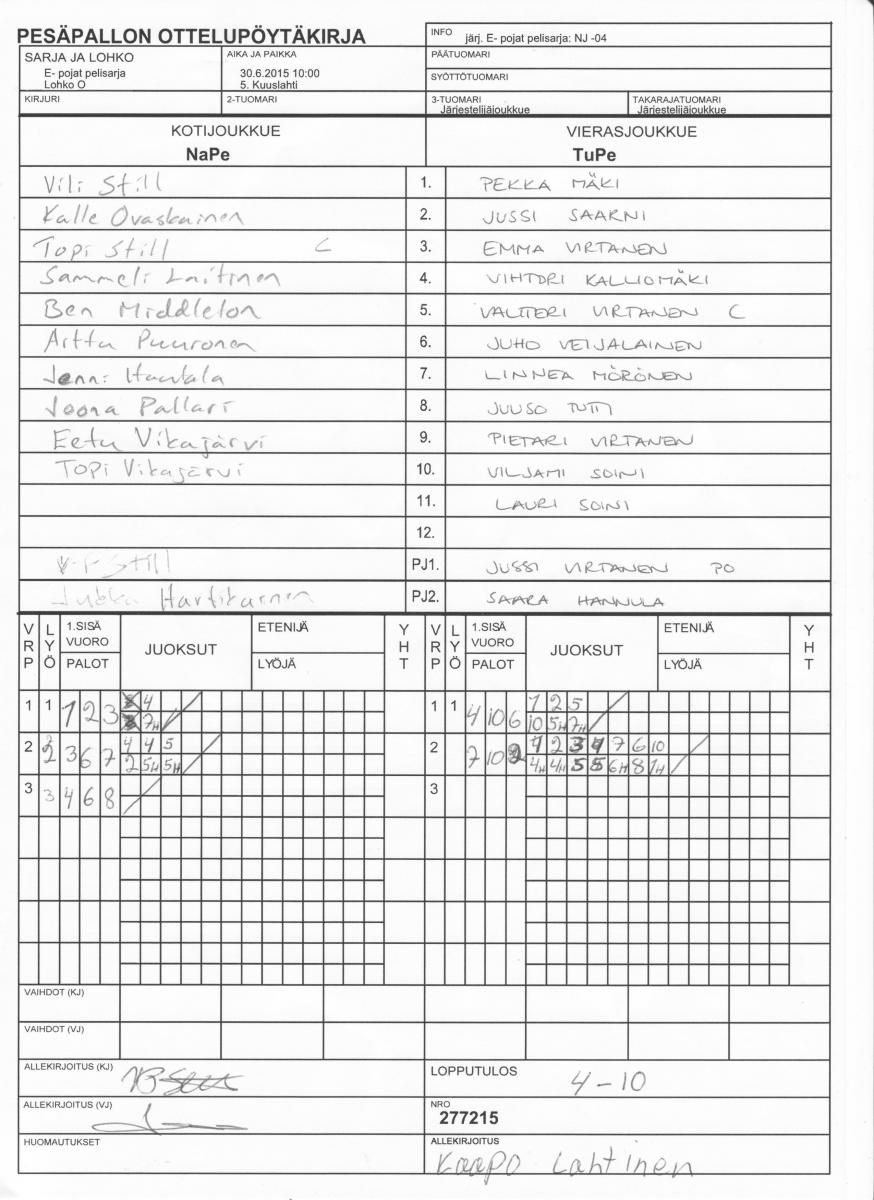 PESÄPALLON OTTELUPÖYTÄKIRJA
INFO järj. E- pojat pelisarja: NJ -04
SARJA JA LOHKO
E- pojat pelisarja
Lohko O
AIKA JA PAIKKA
30.6.2015 10:00
5. Kuuslahti
PÄÄTUOMARI
SYÖTTÖTUOMARI
KIRJURI
2-TUOMARI
3-TUOMARI
Järjestelijäjoukkue
TAKARAJATUOMARI
Järjestelijäjoukkue
KOTIJOUKKUE VIERASJOUKKUE
NaPe TuPe
Vili Still 1. PEKKA MÄKI
Kalle Ovaskainen 2. JUSSI SAARNI
Topi Still C 3. EMMA VIRTANEN
Sammeli Laitinen 4. VIHTORI KALLIOMÄKI
Ben Middleton 5. VALTTERI VIRTANEN C
Arttu Puuronen 6. JUHO VEIJALAINEN
Jenni Hautala 7. LINNEA MÖRÖNEN
Joona Pallari 8. JUUSO TUTTI
Eetu Vikajärvi 9. PIETARI VIRTANEN
Topi Vikajärvi 10. VILJAMI SOINI
11. LAURI SOINI
12.
Still PJ1. JUSSI VIRTANEN PO
Jukka Hartikainen PJ2. SAARA HANNULA
VRP LYÖ 1.SISÄ VUORO PALOT JUOKSUT ETENIJÄ LYÖJÄ YHT VRP LYÖ 1.SISÄ VUORO PALOT JUOKSUT ETENIJÄ LYÖJÄ YHT
1 1 1 2 3 4 1 1 4 10 6 1 2 5
7H 10 5H 7H
2 2 3 6 7 4 4 5 2 7 10 2 1 2 3 4 7 6 10
2 5H 5H 4H 4H 5 5 6H 8 1H
3 3 4 6 8 3
VAIHDOT (KJ)
VAIHDOT (VJ)
ALLEKIRJOITUS (KJ)
LOPPUTULOS 4-10
ALLEKIRJOITUS (VJ)
NRO
277215
HUOMAUTUKSET
ALLEKIRJOITUS
Kaapo Lahtinen